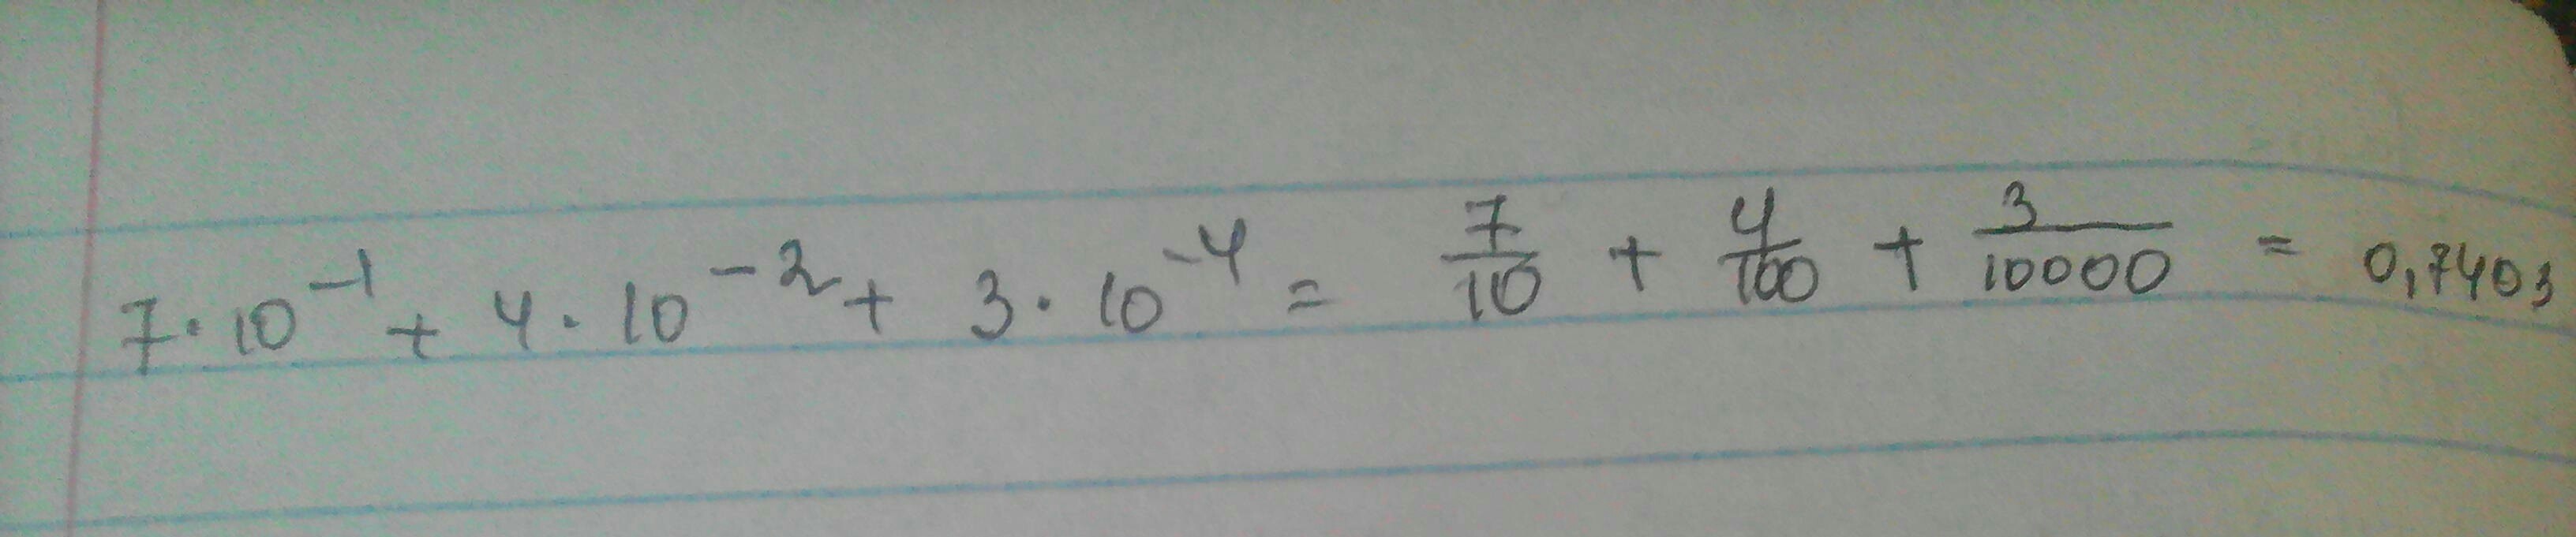 7·10⁻¹ + 4·10⁻² + 3·10⁻⁴ = 7/10 + 4/100 + 3/10000 = 0,7403